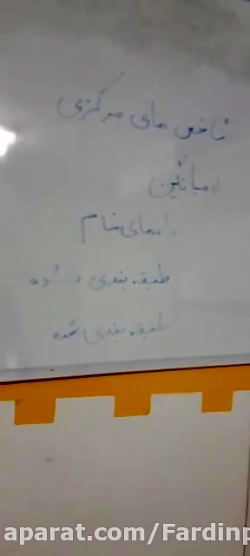 شاخص های مرکزی
۱. میانگین
داده‌های خام
طبقه بندی نشده
طبقه بندی شده
aparat.com/Fardinp